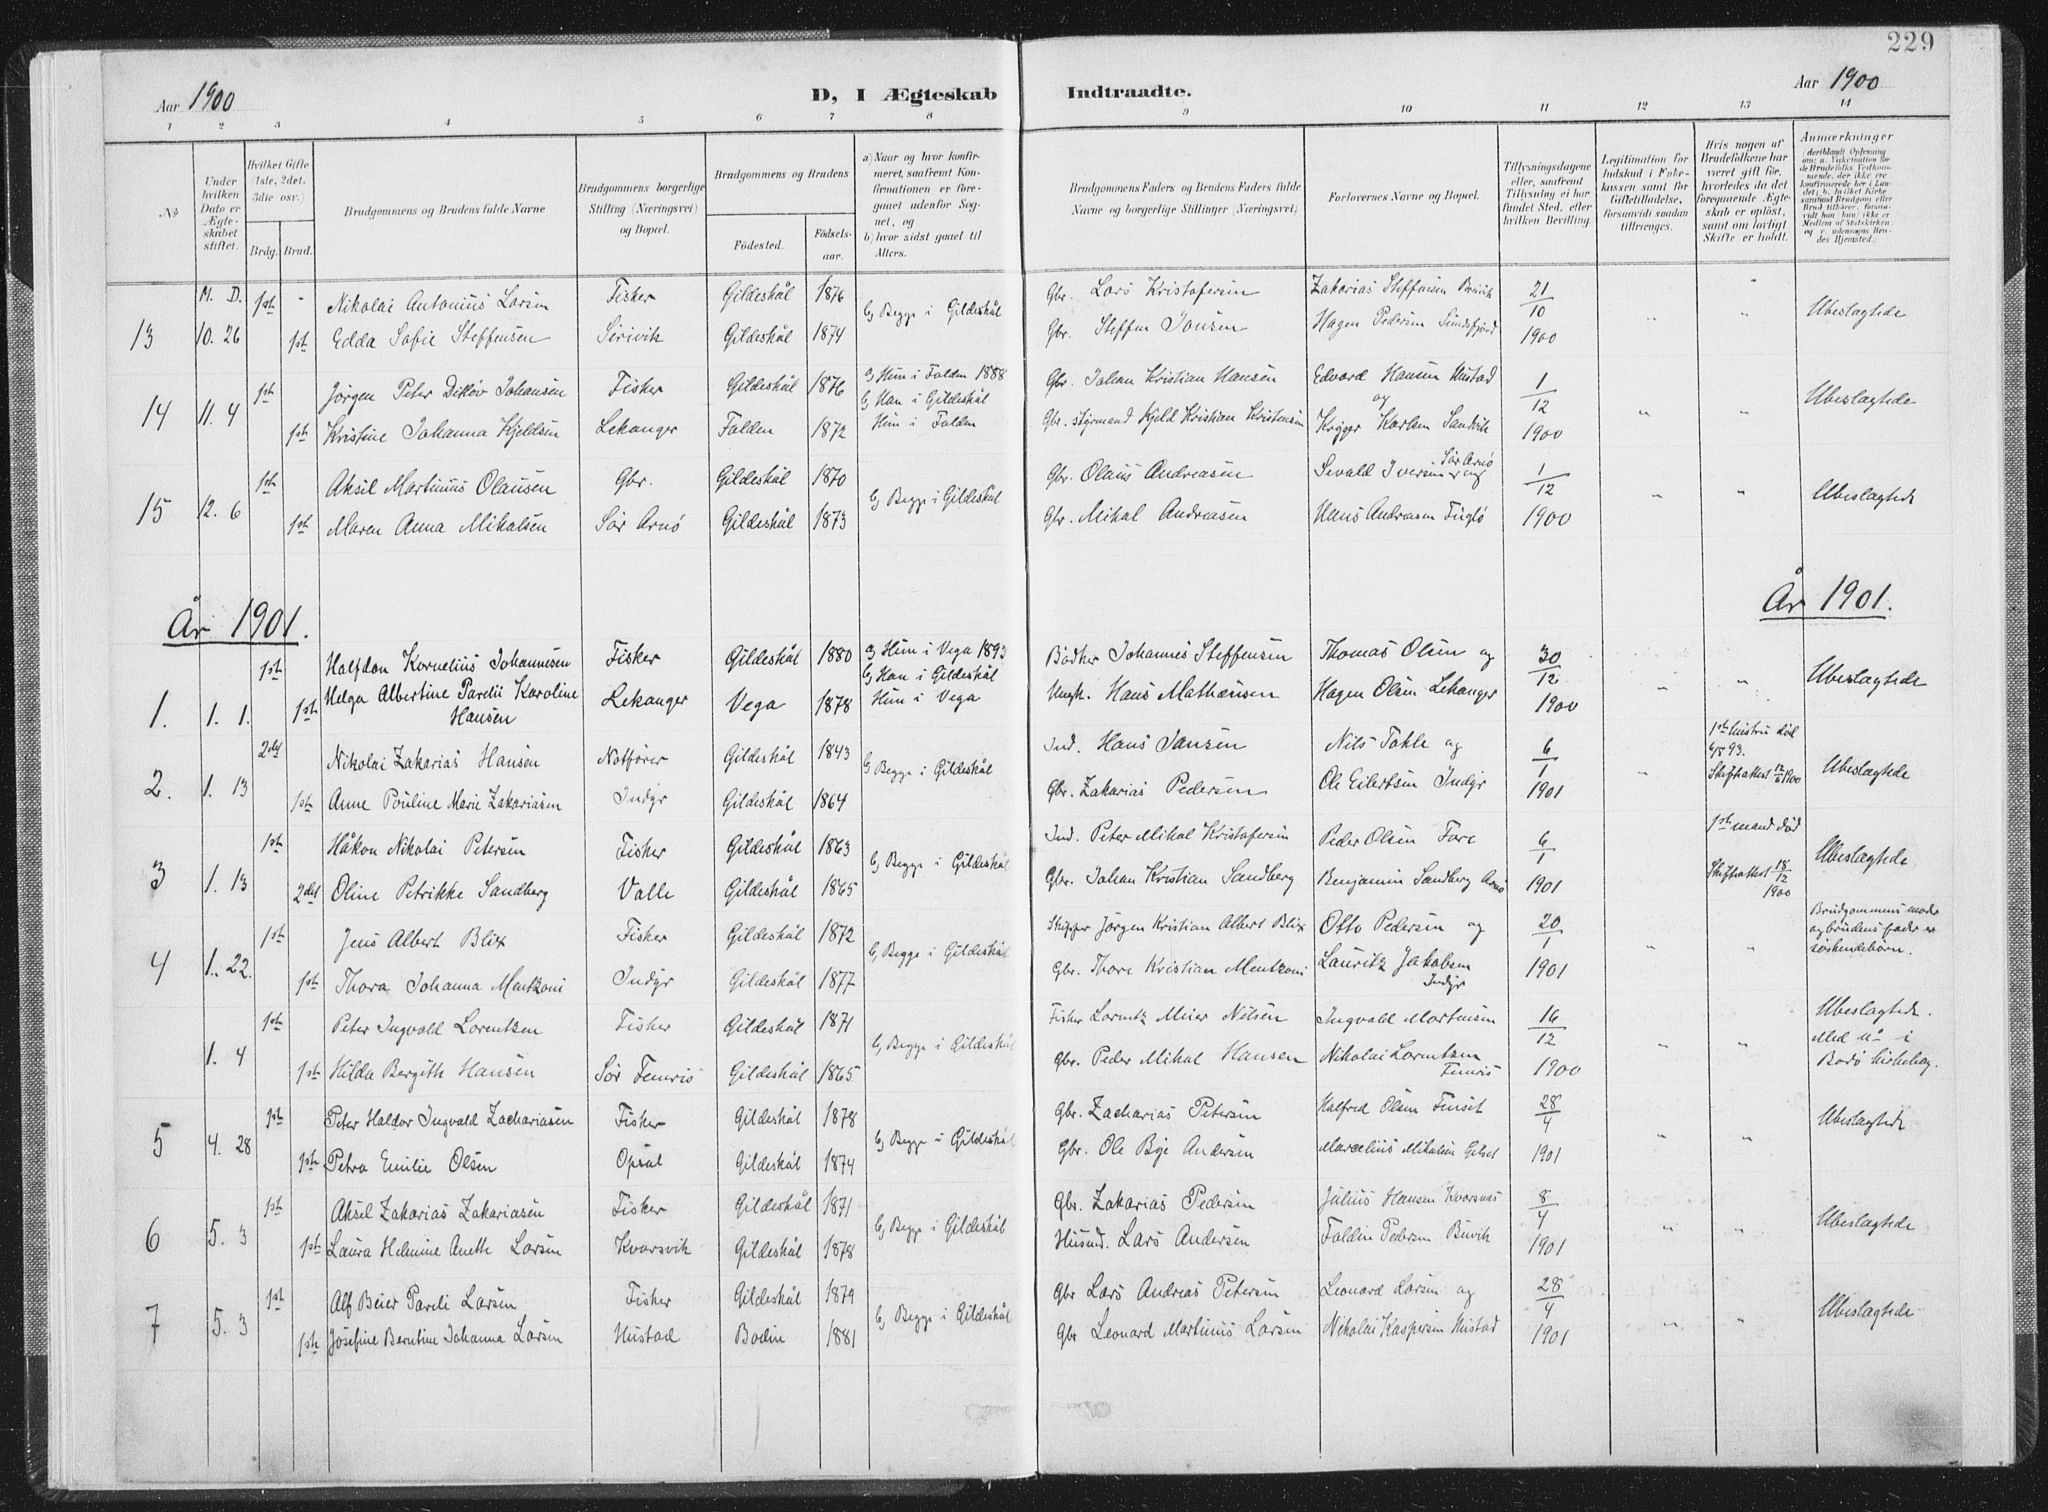 229
Aar 1900
D, I Ægteskab Indtraadte.
Aar 1900
1 2 3 4 5 6 7 8 9 10 11 12 13 14
No.
Under hvilken Dato er Ægteskabet stiftet.
Hvilket Gifte (1ste, 2det, 3die osv.)
Brdg. Brud.
Brudgommens og Brudens fulde Navne
Brudgommens borgerlige Stilling (Næringsvei) og Bopæl.
Brudgommens og Brudens
Fødested. Fødselsaar.
a) Naar og hvor konfirmeret, saafremt Konfirmationen er foregaaet udenfor Sognet, og
b) hvor sidst gaaet til Alters.
Brudgommens Faders og Brudens Faders fulde Navne og borgerlige Stillinger (Næringsvei)
Forlovernes Navne og Bopæl.
Tillysningsdagene eller, saafremt Tillysning ei har fundet Sted, efter hvilken Bevilling.
Legitimation for Indskud i Enkekassen samt for Giftetilladelse, forsaavidt saadan tiltrænges.
Hvis nogen af Brudefolkene har været gift før, hvorledes da det foregaaende Ægteskab er opløst, samt om lovligt Skifte er holdt.
Anmærkninger
M. D. 1ste - Nikolai Antonius Larsen Fisker Gildeskål 1876 b) Begge i Gildeskål Gbr. Lars Kristofersen Zakarias Steffensen 21/10 " Ubeslægtede
13 10. 26 1ste Edda Sofie Steffensen Sørivik Gildeskål 1874 Gbr. Steffen Jonsen Hagen Pedersen Sundsfjord 1900
1ste Jørgen Peter Ditlöv Johansen Fisker Gildeskål 1876 a) Hun i Folden 1888 Gbr. Johan Kristian Hansen Edvard Hansen Nustad 1/12 Ubeslægtede
14 11. 4 b) Han i Gildeskål og " "
1ste Kristine Johanna Kjeldsen Lekanger Folden 1872 Hun i Folden Gbr. styrmand Kjeld Kristian Kristensen Krøger Karlsen Sandvik 1900
1ste Aksel Martinus Olausen Gbr. Gildeskål 1870 b) Begge i Gildeskål Gbr. Olaus Andreasen Sevald Iversen Sør Arnø og 1/12 Ubeslægtede
15 12. 6 1ste Maren Anna Mikalsen Sør Arnö Gildeskål 1873 Gbr. Mikal Andreasen Hans Andreasen Fuglø 1900 " "
År 1901. År 1901.
1ste Halfdan Kornelius Johannesen Fisker Gildeskål 1880 a) Hun i Vega 1893 Bødker Johannes Steffensen Thomas Olsen og 30/12 Ubeslægtede
b) Han i Gildeskål
1. 1. 1. 1ste Helga Albertine Parelie Karoline Hansen Lekanger Vega 1878 Hun i Vega Ungk. Hans Mathæusen Hagen Olsen Lekanger 1900 " "
2det Nikolai Zakarias Hansen Notfører Gildeskål 1843 b) Begge i Gildeskål Ind. Hans Jansen Nils Tahle og 6/1 1ste hustru död 4/5 93. Ubeslægtede
2. 1. 13 1ste Anne Pauline Marie Zakariasen Indyr Gildeskål 1864 Gbr. Zakarias Pedersen Ole Eilertsen Indyr 1901 " Skifteattest 12/6 1900
1ste Håkon Nikolai Petersen Fisker Gildeskål 1863 b) Begge i Gildeskål Ind. Peter Mikal Kristofersen Peder Olsen Fore 6/1 1ste mand död Ubeslægtede
3 1. 13 2det Oline Petrikke Sandberg Valle Gildeskål 1865 Gbr. Johan Kristian Sandberg Benjamin Sandberg Arnø 1901 Skifteattest 18/12 1900
1ste Jens Albert Blix Fisker Gildeskål 1872 b) Begge i Gildeskål Skipper Jörgen Kristian Albert Blix Otto Pedersen og 20/1 Brudgommens moder og brudens fader er söskendebörn.
4 1. 22. 1ste Thora Johanna Mentzoni Indyr Gildeskål 1877 Gbr. Thore Kristian Mentzoni Lauritz Jakobsen Indyr 1901 " "
1ste Peter Ingvald Lorentzen Fisker Gildeskål 1871 b) Begge i Gildeskål Fisker Lorentz Meier Nilsen Ingvald Mortensen 16/12 Ubeslægtede.
1. 4 1ste Hilda Bergith Hansen Sör Femris Gildeskål 1865 Gbr. Peder Mikal Hansen Nikolai Lorentzen Femris 1900 " " Med No i Bodö kirkebog.
1ste Peter Haldor Ingvald Zachariasen Fisker Gildeskål 1878 b) Begge i Gildeskål Gbr. Zacharias Petersen Halfred Olsen Finset 28/4 Ubeslægtede
5 4. 28 1ste Petra Emilie Olsen Opsal Gildeskål 1874 Gbr. Ole Bye Andersen Marcelius Mikalsen Gilset 1901 " "
1ste Aksel Zakarias Zakariasen Fisker Gildeskål 1871 b) Begge i Gildeskål Gbr. Zakarias Pedersen Julius Hansen Kvarsnes 8/4 Ubeslægtede
6 5. 3 1ste Laura Helmine Anette Larsen Kvarsvik Gildeskål 1878 Husmd. Lars Andersen Faldin Pedersen Buvik 1901 " "
1ste Alf Beier Pareli Larsen Fisker Gildeskål 1879 b) Begge i Gildeskål Gbr Lars Andreas Petersen Leonard Larsen og 28/4 Ubeslægtede
7 5. 3 1ste Josefine Berntine Johanna Larsen Nustad Bodin 1881 Gbr Leonard Martinus Larsen Nikolai Kaspersen Nustad 1901 " "